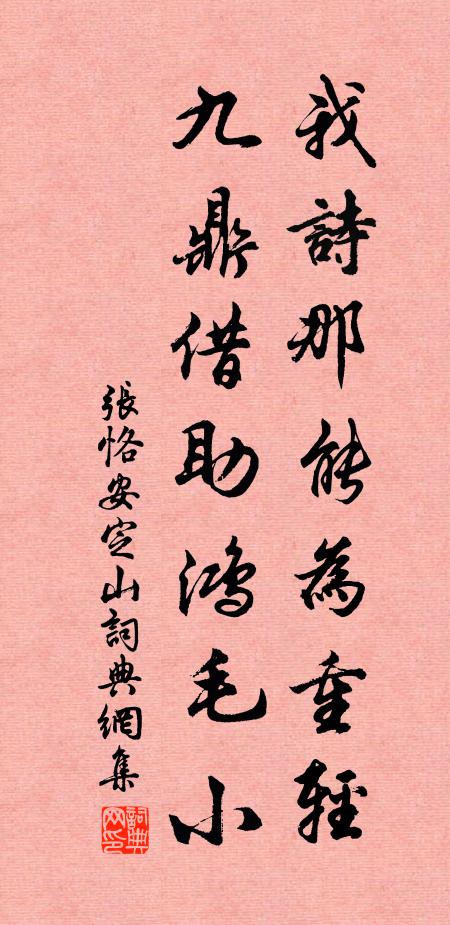 我詩那能為重輕
九鼎借助鴻毛小
張恪安定山詞典網集
詞典网印